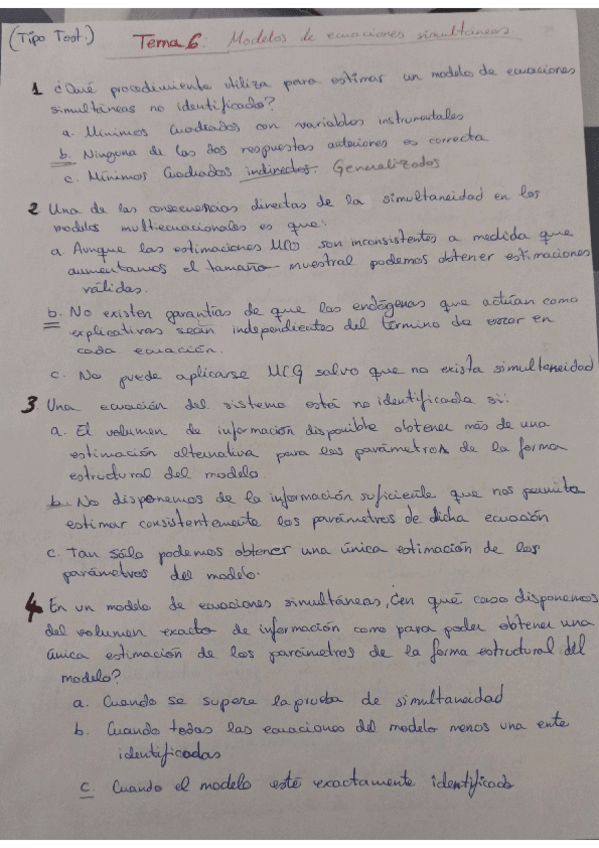 (Tipo Test.) Tema 6: Modelos de ecuaciones simultáneas
1 ¿Qué procedimiento utiliza para estimar un modelo de ecuaciones
simultáneas no identificado?
a. Mínimos Cuadrados con variables instrumentales
b. Ninguna de las dos respuestas anteriores es correcta
c. Mínimos Cuadrados indirectos. Generalizados
2 Una de las consecuencias directas de la simultaneidad en los
modelos multiecuacionales es que:
a Aunque las estimaciones MCO son inconsistentes a medida que
aumentamos el tamaño muestral podemos obtener estimaciones
válidas.
b. No existen garantías de que las endógenas que actúan como
explicativas sean independientes del término de error en
cada ecuación.
c. No puede aplicarse MCG salvo que no exista simultaneidad
3 Una ecuación del sistema está no identificada si:
a. El volumen de información disponible obtener más de una
estimación alternativa para los parámetros de la forma
estructural del modelo.
b. No disponemos de la información suficiente que nos permita
estimar consistentemente los parámetros de dicha ecuación
c. Tan sólo podemos obtener una única estimación de los
parámetros del modelo.
4 En un modelo de ecuaciones simultáneas, ¿en qué caso disponemos
del volumen exacto de información como para poder obtener una
única estimación de los parámetros de la forma estructural del
modelo?
a. Cuando se supera la prueba de simultaneidad
b. Cuando todas las ecuaciones del modelo menos una esté
identificadas
c. Cuando el modelo esté exactamente identificado